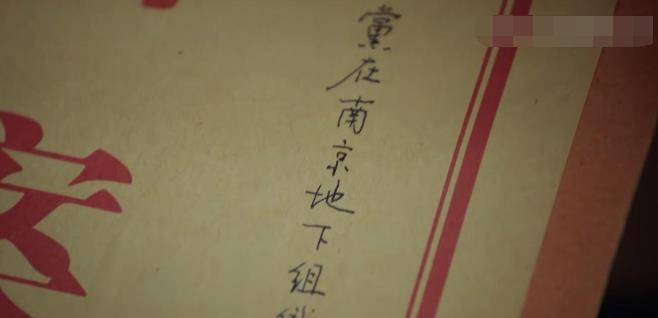 黨在南京地下組